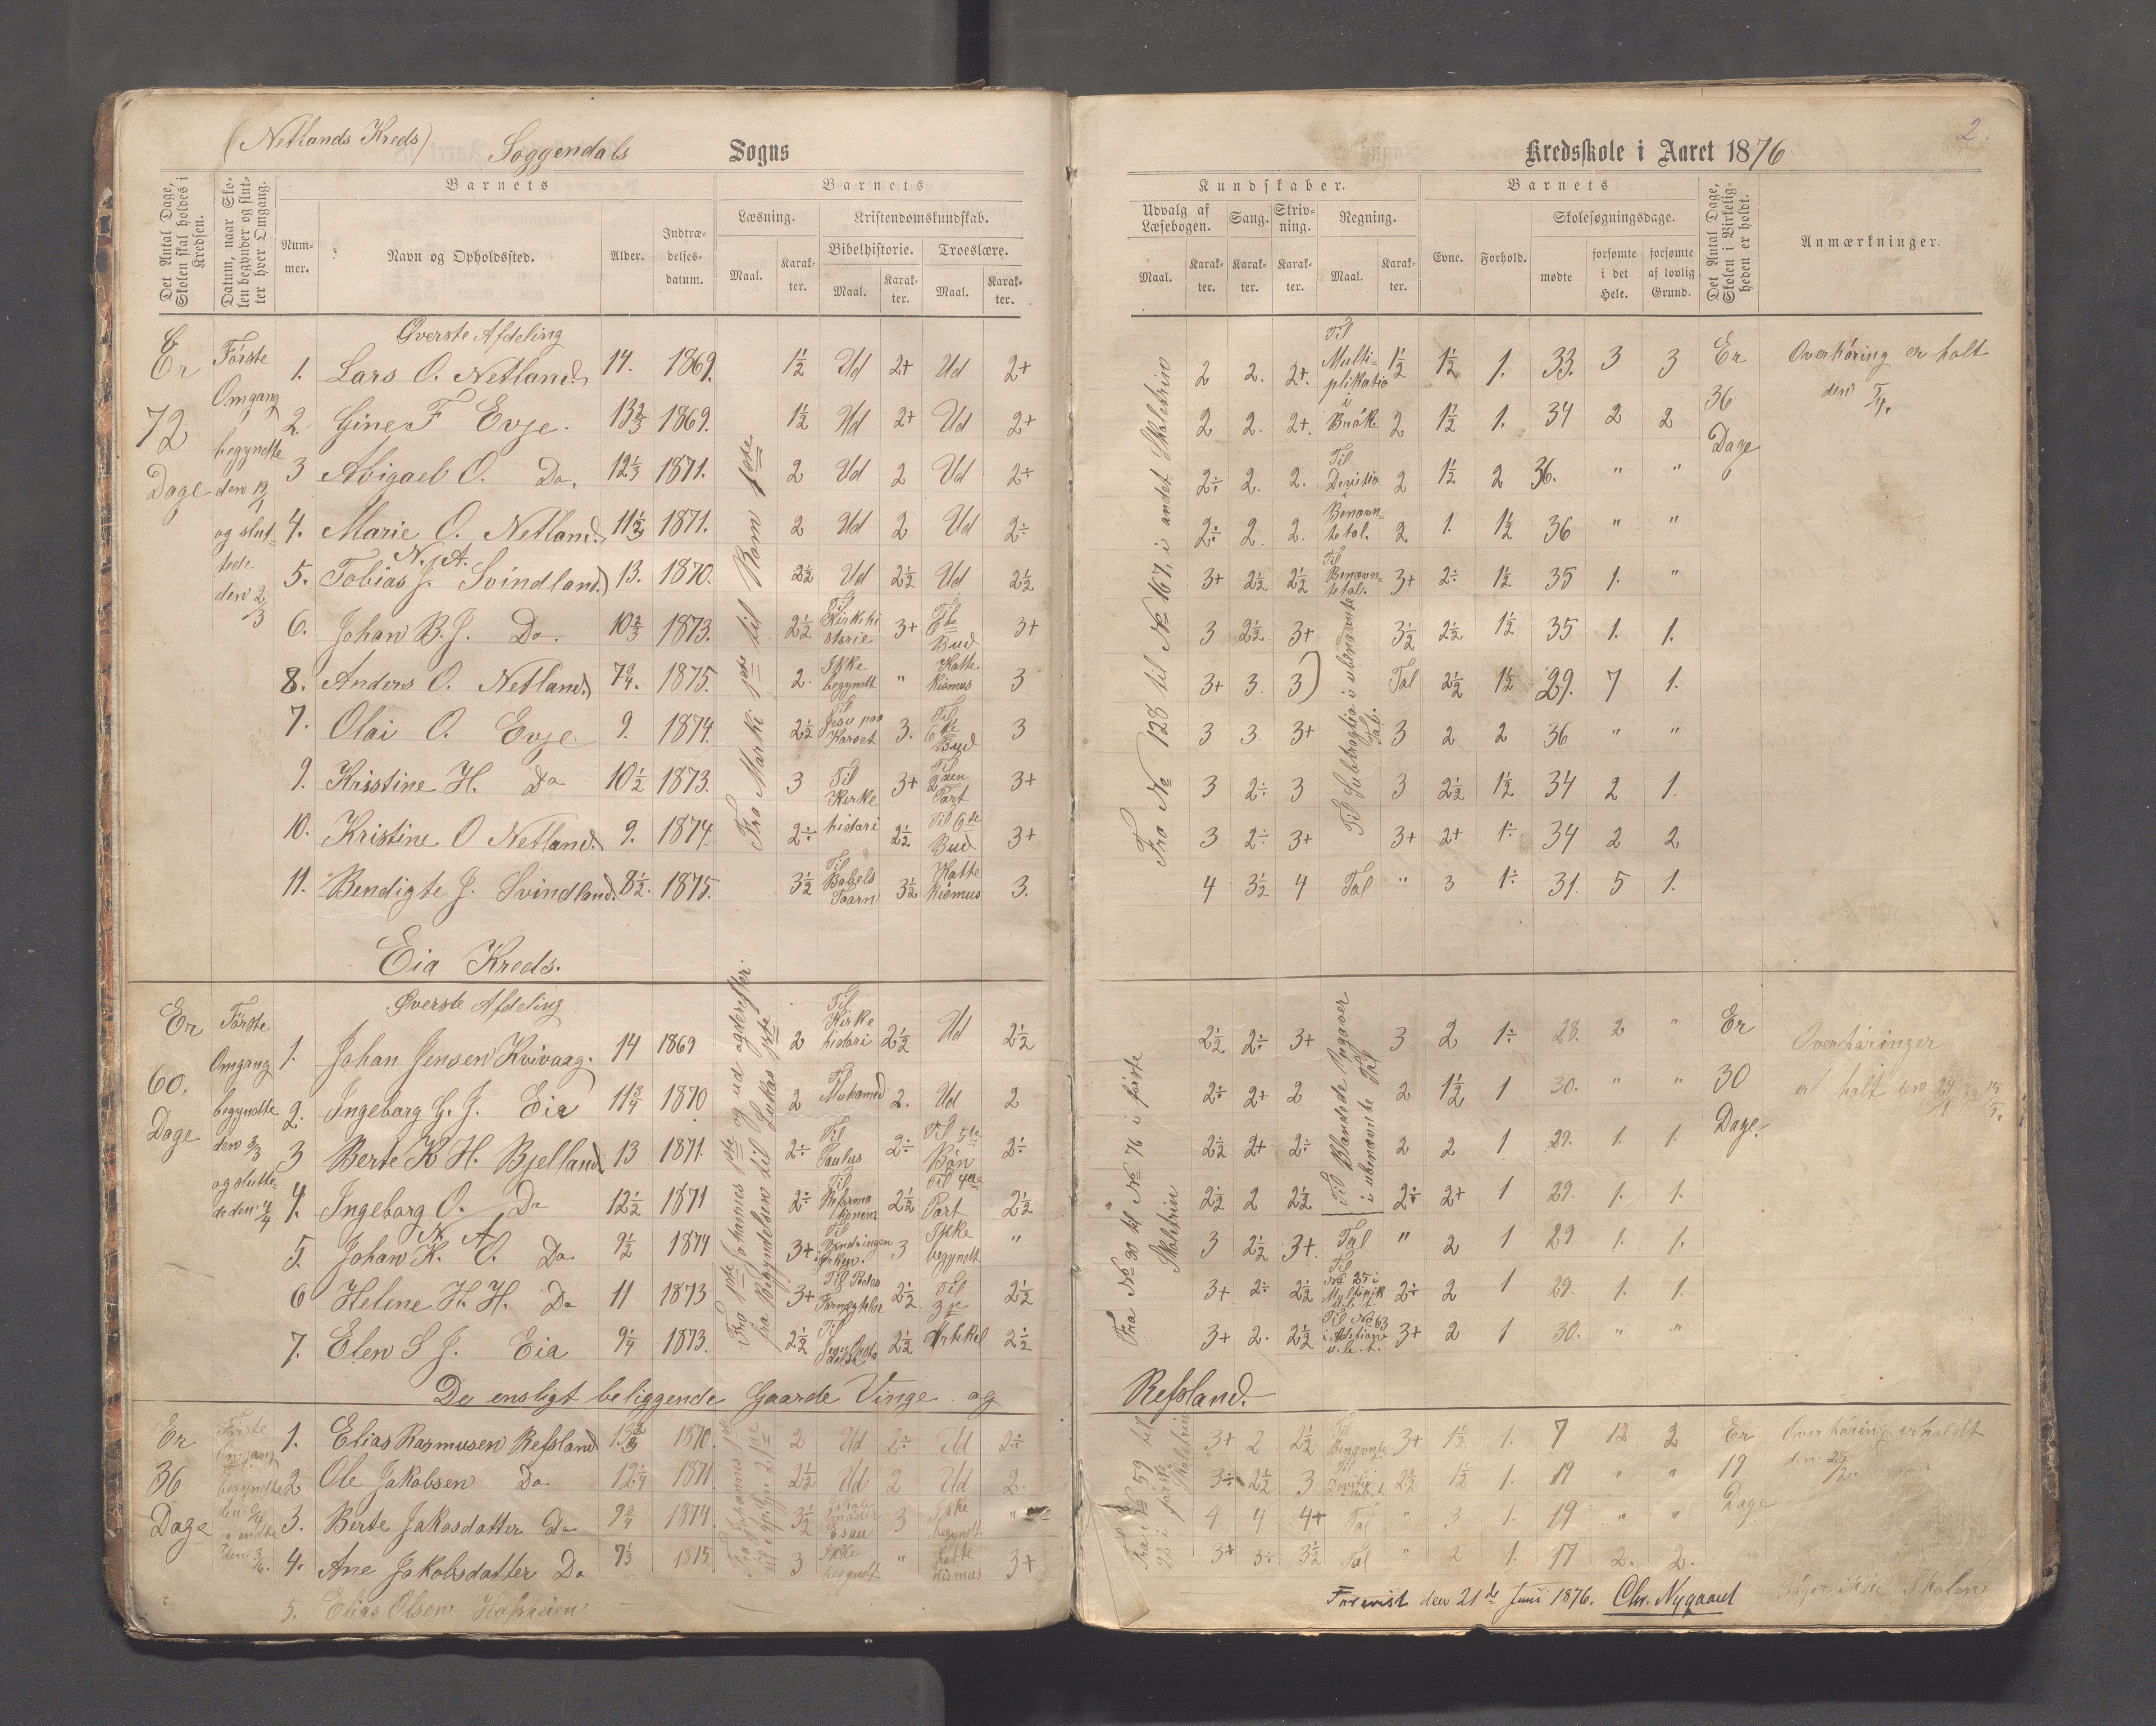 (Netlands Kreds)
Soggendals Sogns
Kredsskole i Aaret 1876
2.
Det Antal Dage, Skolen skal holdes i Kredsen.
Datum, naar Skolen begynder og slutter hver Omgang.
Barnets
Nummer.
Navn og Opholdssted.
Alder.
Indtrædelsesdatum.
Barnets
Læsning.
Maal.
Karakter.
Kristendomskundskab.
Bibelhistorie.
Maal.
Karakter.
Troeslære.
Maal.
Karakter.
Kundskaber.
Udvalg af Læsebogen.
Maal.
Karakter.
Sang.
Karakter.
Skrivning.
Karakter.
Regning.
Maal.
Karakter.
Barnets
Evne.
Forhold.
Skolesøgningsdage.
mødte
forsømte i det Hele.
forsømte af lovlig Grund.
Det Antal Dage, Skolen i Virkeligheden er holdt.
Anmærkninger.
Er 72 Dage
Første Omgang begyndte den 19/1 og sluttede den 2/3
Øverste Afdeling
Fra Marki 1ste til Rom 1ste
Fra No 128 til No 167, i andet Skoletrin
1. Lars O. Netland. 14. 1869. 1½ Ud 2+ Ud 2+ 2 2. 2+. Til Multiplikatio 1½ 1½ 1. 33. 3 3
2. Gine F Evje. 13⅔ 1869. 1½ Ud 2+ Ud 2+ 2 2. 2+. i Brök 2 1½ 1. 34 2 2
3 Abigael O. Do. 12⅓ 1871. 2 Ud 2 Ud 2+ 2÷ 2. 2. Til Devisio 2 1½ 2 36. " "
4. Marie O. Netland. 11½ 1871. 2 Ud 2 Ud 2÷ 2÷ 2. 2. i Benævntetal. 2 1. 1½ 36 " "
N. A.
5. Tobias J. Svindland. 13. 1870. 2½ Ud 2½ Ud 2½ 3+ 2½ 2½ Til Benævntetal. 3+ 2÷ 1½ 35 1. "
6. Johan B. J. Do. 10⅔ 1873. 2½ Til Kirkehistorie 3+ 6te Bud 3+ 3 2½ 3+ 3½ 2½ 1½ 35 1. 1.
8. Anders O. Netland. 7¾. 1875. 2. Ikke begyndt " Kattekismus 3 3+ 3 3 Tal 2½ 1½ 29. 7 1.
7. Olai O. Evje 9. 1874. 2½ Til Jesu paa Korset 3. Til 6te Bud 3 3 3. 3+ 3 2 2 36 " "
9. Kristine H. Do 10½ 1873. 3 Til Kirke 3+ Til 2den Part 3+ 3 2÷ 3 3 2½ 1½ 34 2 1.
10. Kristine O Netland. 9. 1874. 2÷ histori 2½ Til 6te Bud 3+ 3 2÷ 3+ 3+ 2+ 1÷ 34 2 2
11. Bendigte J. Svindland. 8½. 1875. 3½ Til Babels Taarn 3½ Kattekismus 3. 4 3½ 4 Tal " 3 1÷ 31. 5 1.
Til Subtragtio i ubenævnte Tal.
Er 36 Dage
Overhöring er holt den 5/4.
Eia Kreds.
Er 60. Dage
Første Omgang begyndte den 3/3 og sluttede den 4/4
Øverste Afdeling
Fra 1ste Johannes 1ste og ud og derefter fra Begyndelsen til Lukas 1ste
Fra No 30 til No 76 i förste Skoletrin
Til Blandede Opgaver i ubenævnte Tal
1. Johan Jensen Kvivaag. 14 1869 2 Til Kirkehistori 2½ Ud 2½ 2½ 2÷ 3+ 3 2 1÷ 28. 2 "
2. Ingeborg G. J. Eia 11¾ 1870 2 Til Muhamed 2. Ud 2 2÷ 2+ 2 2 1½ 1 30. " "
3 Berte K H. Bjelland. 13 1871. 2÷ Til Paulus 2÷ Til 5te Bön 2÷ 2½ 2+ 2÷ 2 2 1 29. 1. 1.
4. Ingeborg O. Do 12½ 1871 2÷ Til Reformationen 2½ Til 4de Part 2½ 2½ 2 2½ 2÷ 2+ 1 29. 1. 1.
N. A
5. Johan K. O. Do 9½ 1874 3+ Til Vandringen i Ørken. 3 Ikke begyndt " 3 2½ 3+. Tal " 2 1 29 1. 1.
6 Helene H. H. Do 11 1873 3+ Til Peders Fornegtelse 2½ Til 3je 2½ 3+ 2÷ 2½ Til No 25 i Multiplik u.b.t. 2÷ 2 1 29. 1. 1.
7. Elen S J. Eia 9¼ 1873. 2½ Til 2½ Artikel 2½ 3+ 2. 2½ Til No 63 i Adition u.b.t. 3+ 2 1 30. " "
Er 30 Dage.
Overhöringer er holt den 24/4
De ensligt beliggende Gaarde Vinge og Refsland.
Er 36 Dage
Første Omgang begyndte den og endte den 3/6.
Fra Johannes 1ste
Fra No 59 til 92 i förste Skoletrin
1. Elias Rasmusen Refsland 1870. 2 Ud 2÷ Ud 2÷ 3+ 2 2½ Til 3+ 1½ 1. 7 12 2
2 Ole Jakobsen Do 12¼ 1871 2½ Ud 2 Ud 2. 3÷ 2½ 3 Devitio 2½ 1½ 1. 19 " "
3. Berte Jakosdatter Do 9¾ 1874 3½ Jakob möder Esau 3 Ikke begyndt " 4 4 4+ Tal " 3 1. 19 " "
4. Ane Jakobsdatter Do 7⅓ 1875 3 Ikke begyndt " Kattekismus 3+ 3+ 3÷ 3½ Tal " 2 1. 17 2. 2.
5. Elias Olsen
Er 19 Dage
Overhöring er holdt
Skolen
Forevist den 21de Juni 1876. Chr. Nygaard